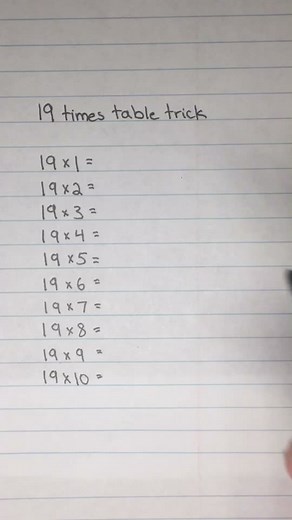 19 times table trick
19 x 1 =
19 x 2 =
19 x 3 =
19 x 4 =
19 x 5 =
19 x 6 =
19 x 7 =
19 x 8 =
19 x 9 =
19 x 10 =